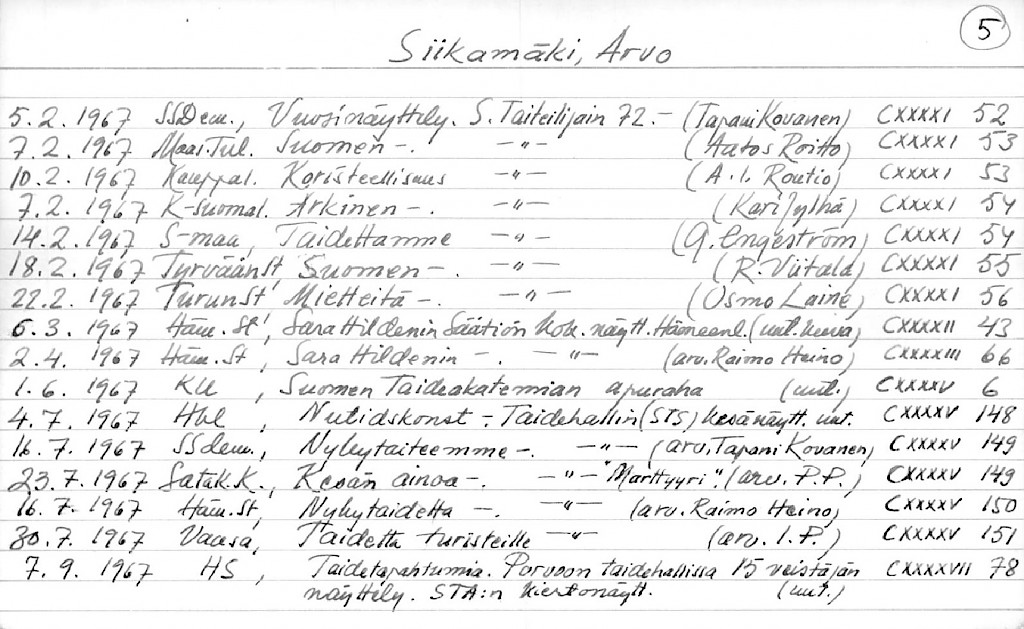 5
Siikamäki, Arvo
5.2.1967 SSDem., Vuosinäyttely. S. Taiteilijain 72.- (Tapani Kovanen) CXXXXI 52
7.2.1967 Maas.Tul. Suomen -. -"- (Aatos Roitto) CXXXXI 53
10.2.1967 Kauppal. Koristeellisuus -"- (A.I. Routio) CXXXXI 53
7.2.1967 K-suomal. Arkinen -. -"- (Kari Jylhä) CXXXXI 54
14.2.1967 S-maa, Taidettamme -"- (G. Engeström) CXXXXI 54
18.2.1967 Tyrvään St, Suomen -. -"- (R. Viitala) CXXXXI 55
22.2.1967 Turun St, Mietteitä -. -"- (Osmo Laine) CXXXXI 56
6.3.1967 Häm. St, Sara Hildenin Säätiön kok. näytt. Hämeenl. (uut. kuva) CXXXXII 43
2.4.1967 Häm. St, Sara Hildenin -. -"- (arv. Raimo Heino) CXXXXIII 66
1.6.1967 KU, Suomen Taideakatemian apuraha (uut.) CXXXXV 6
4.7.1967 Hbl, Nutidskonst - Taidehallin (STS) kesänäytt. uut. CXXXXV 148
16.7.1967 SSdem., Nykytaiteemme -. -"- (arv. Tapani Kovanen) CXXXXV 149
23.7.1967 Satak.K., Kesän ainoa -. -"- "Marttyyri". (arv. P.P.) CXXXXV 149
16.7.1967 Häm. St, Nykytaidetta -. -"- (arv. Raimo Heino) CXXXXV 150
30.7.1967 Vaasa, Taidetta turisteille -"- (arv. I.P.) CXXXXV 151
7.9.1967 HS, Taidetapahtumia. Porvoon taidehallissa 15 veistäjän CXXXXVII 78
näyttely. STA:n kiertonäytt. (uut.)